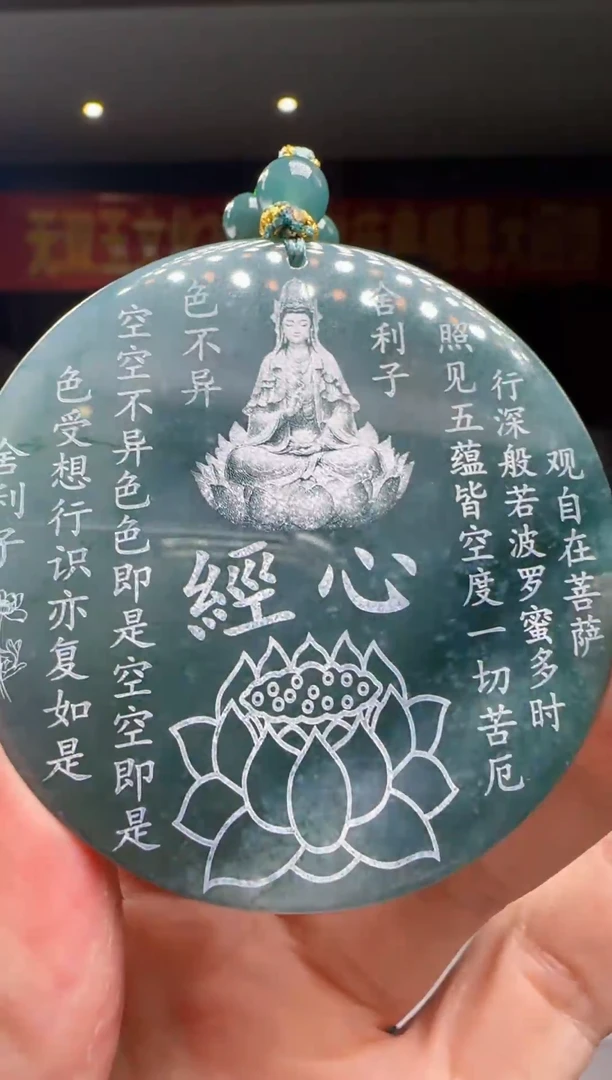 观自在菩萨
行深般若波罗蜜多时
照见五蕴皆空度一切苦厄
舍利子
心經
色不异
空空不异色色即是空空即是
色受想行识亦复如是
舍利子